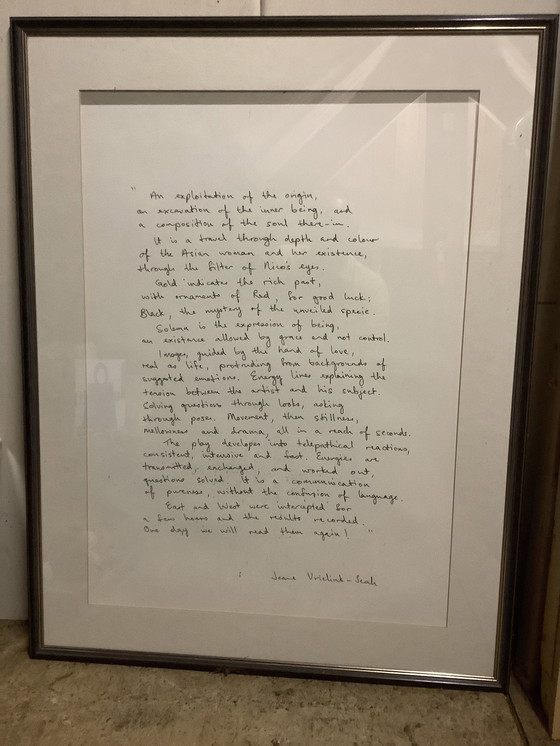 " An exploitation of the origin,
an excavation of the inner being, and
a composition of the soul there-in.
It is a travel through depth and colour
of the Asian woman and her existence,
through the filter of Nico's eyes.
Gold indicates the rich past,
with ornaments of Red, for good luck;
Black, the mystery of the unveiled specie.
Solemn is the expression of being,
an existance allowed by grace and not control.
Images, guided by the hand of love,
real as life, protruding from backgrounds of
suggested emotions. Energy lines explaining the
tension between the artist and his subject.
Solving questions through looks, asking
through poses. Movement, then stillness,
mellowness and drama, all in a reach of seconds.
The play developes into telepathical reactions,
consistent, intensive and fast. Energies are
transmitted, exchanged, and worked out,
questions solved. It is a communication
of pureness, without the confusion of language.
East and West were intercepted for
a few hours and the results recorded.
One day we will read them again! "
Vrielink-Seah